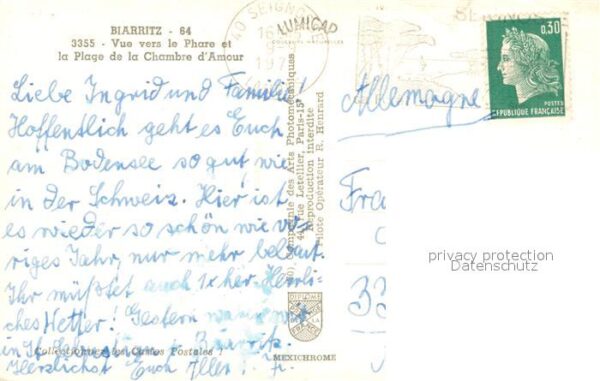 BIARRITZ - 64
3355 - Vue vers le Phare et
la Plage de la Chambre d'Amour
Liebe Ingrid und Familie!
Hoffentlich geht es Euch
am Bodensee so gut wie
in der Schweiz. Hier ist
es wieder so schön wie vo-
riges Jahr, nur mehr bebaut.
Ihr müßtet auch 1x her. Herrli-
ches Wetter! Gestern waren wir
in S. Sebastian + Biarritz.
Herzlichst Euch Allen
Collectionnez les Cartes Postales !
LUMICAP
40 SEIGNO
16
197
Compagnie des Arts Photomécaniques
44, rue Letellier, Paris-15e
Reproduction interdite
Pilote Opérateur R. Henrard
DIPLOME
FRANCE
MEXICHROME
0,30
POSTES
REPUBLIQUE FRANÇAISE
Allemagne
Fra
privacy protection
Datenschutz
33